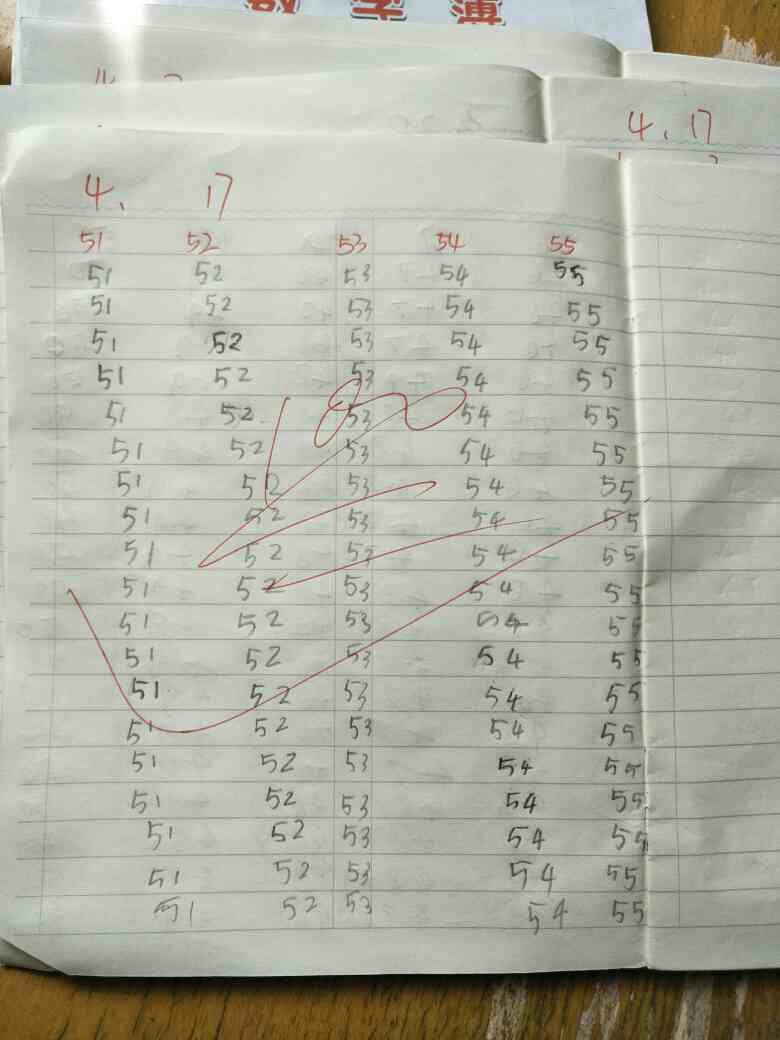 数 学
4. 17
4. 17
51 52 53 54 55
51 52 53 54 55
51 52 53 54 55
51 52 53 54 55
51 52 53 54 55
51 52 53 54 55
51 52 53 54 55
51 52 53 54 55
51 52 53 54 55
51 52 53 54 55
51 52 53 54 55
51 52 53 54 55
51 52 53 54 55
51 52 53 54 55
51 52 53 54 55
51 52 53 54 55
51 52 53 54 55
51 52 53 54 55
51 52 53 54 55
51 52 53 54 55
100